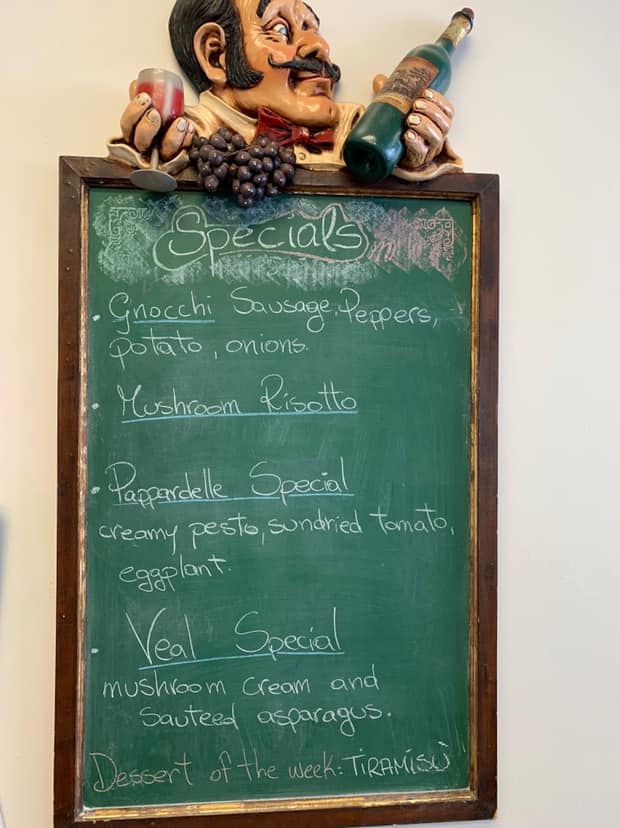 Specials
Gnocchi Sausage, Peppers,
potato, onions.
Mushroom Risotto
Pappardelle Special
creamy pesto, sundried tomato,
eggplant.
Veal Special
mushroom cream and
sauteed asparagus.
Dessert of the week: TiRAMiSÙ